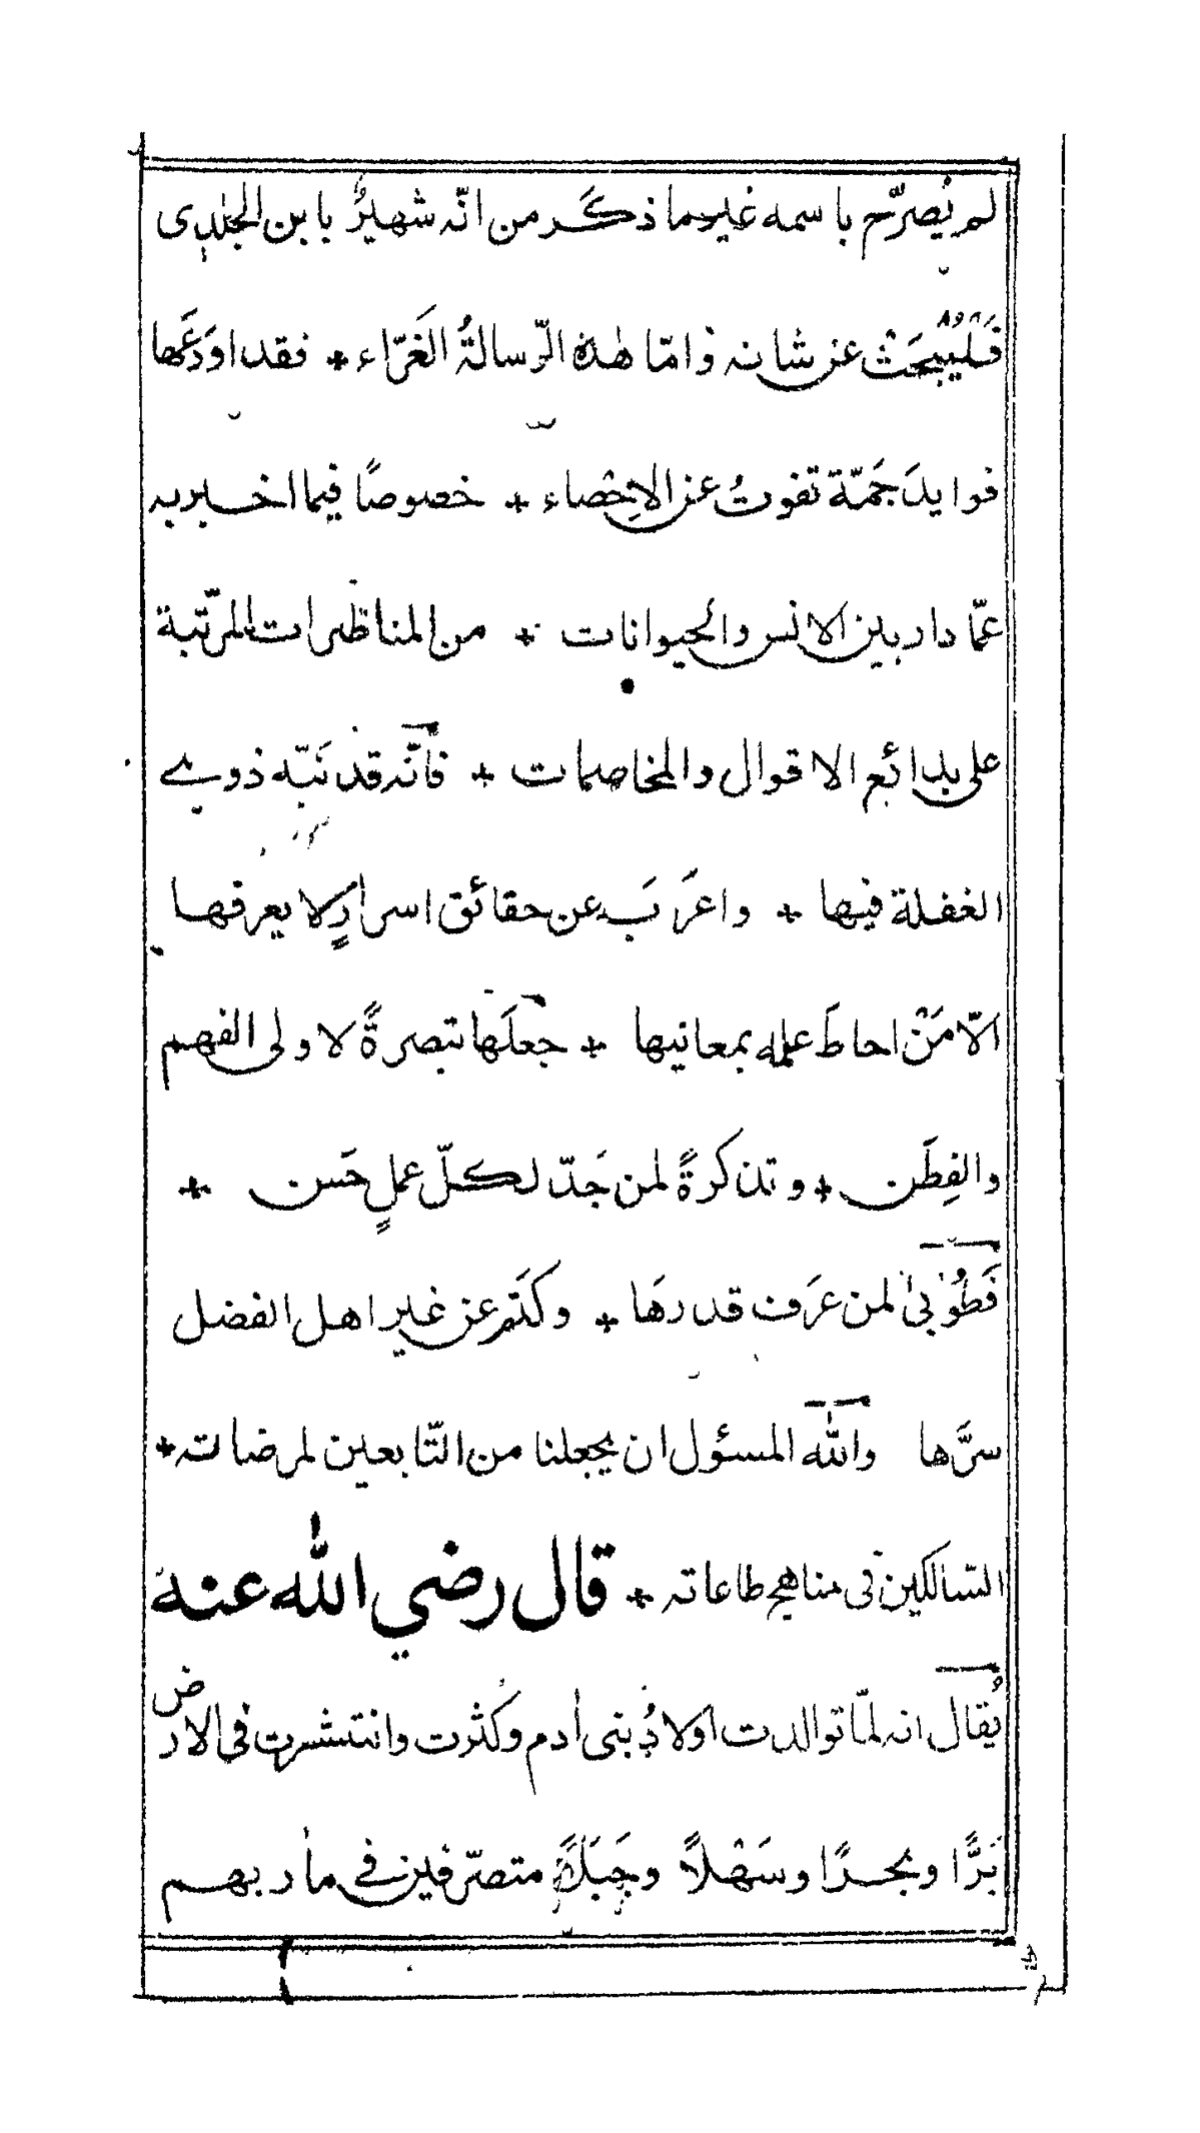 لم يُصرّح باسمه غير ما ذكر من انّه شهيرٌ بابن الجلدى
فَلْيُبْحَثْ عن شانه وامّا هذه الرّسالةُ الغَرّاء + فقد اودَعَها
فوايدَ جَمّة تفوتُ عن الاِحْصاء + خصوصًا فيما اخبر به
عمّا دار بين الانس والحيوانات + من المناظرات المرتّبة
على بدائع الاقوال والمخاصمات + فانّه قد نَبّه ذوي
الغفلة فيها + واعرَبَ عن حقائق اسرارٍ لا يعرفها
الّا مَنْ احاطَ علمه بمعانيها + جعلَها تبصرةً لاولى الفهم
والفِطَن + وتذكرةً لمن جَدّ لكلّ عملٍ حَسن +
فَطُوبىٰ لمن عرَف قدرهَا + وكتَم عن غير اهل الفضل
سرَّها والله المسئول ان يجعلنا من التّابعين لمرضاته +
السّالكين فى مناهج طاعاته + قال رضي الله عنه
يُقال انه لمّا توالدت اولادُ بنى اٰدم وكثرت وانتشرت فى الارض
بَرًّا وبحرًا وسَهْلاً وجَبَلاً متصرّفين في مأربهم